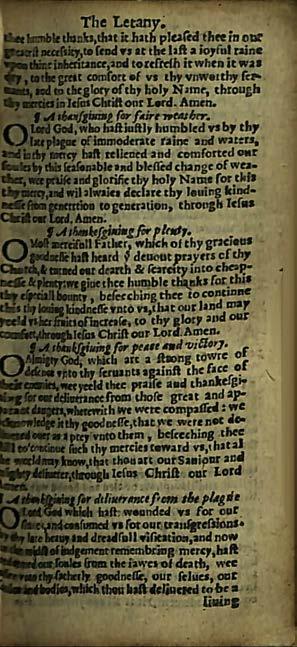 The Letany.
thee humble thanks, that it hath pleased thee in our
greatest necessity, to send vs at the last a ioyful raine
vpon thine inheritance, and to refresh it when it was
dry, to the great comfort of vs thy vnworthy ser-
uants, and to the glory of thy holy Name, through
thy mercies in Iesus Christ our Lord. Amen.
¶ A thanksgiuing for faire weather.
O Lord God, who hast iustly humbled vs by thy
late plague of immoderate raine and waters,
and in thy mercy hast relieued and comforted our
soules by this seasonable and blessed change of wea-
ther, wee praise and glorifie thy holy Name for this
thy mercy, and wil alwaies declare thy louing kind-
nesse from generrtion to generation, through Iesus
Christ our Lord. Amen.
¶ A thankesgiuing for plenty.
O Most mercifull Father, which of thy gracious
goodnesse hast heard ẙ deuout prayers of thy
Church, & turned our dearth & scarcity into cheap-
nesse & plenty: we giue thee humble thanks for this
thy especiall bounty, beseeching thee to continue
this thy louing kindnesse vnto vs, that our land may
yeeld vs her fruits of increase, to thy glory and our
comfort, through Iesus Christ our Lord. Amen.
¶ A thanksgiuing for peace and victory.
O Almighty God, which art a strong towre of
defence vnto thy seruants against the face of
their enemies, wee yeeld thee praise and thanksgi-
uing for our deliuerance from those great and ap-
parant dangers, wherewith we were compassed: we
acknowledge it thy goodnesse, that we were not de-
liuered ouer as a prey vnto them, beseeching thee
still to continue such thy mercies toward vs, that al
the world may know, that thou art our Sauiour and
mighty deliuerer, through Iesus Christ our Lord
Amen.
¶ A thanksgiuing for deliuerance from the plague
O Lord God which hast wounded vs for our
sinnes, and consumed vs for our transgressions.
by thy late heauy and dreadfull visitation, and now
in the midst of iudgement remembring mercy, hast
redeemed our soules from the iawes of death, wee
offer vnto thy fatherly goodnesse, our selues, our
soules and bodies, which thou hast deliuered to be a
liuing